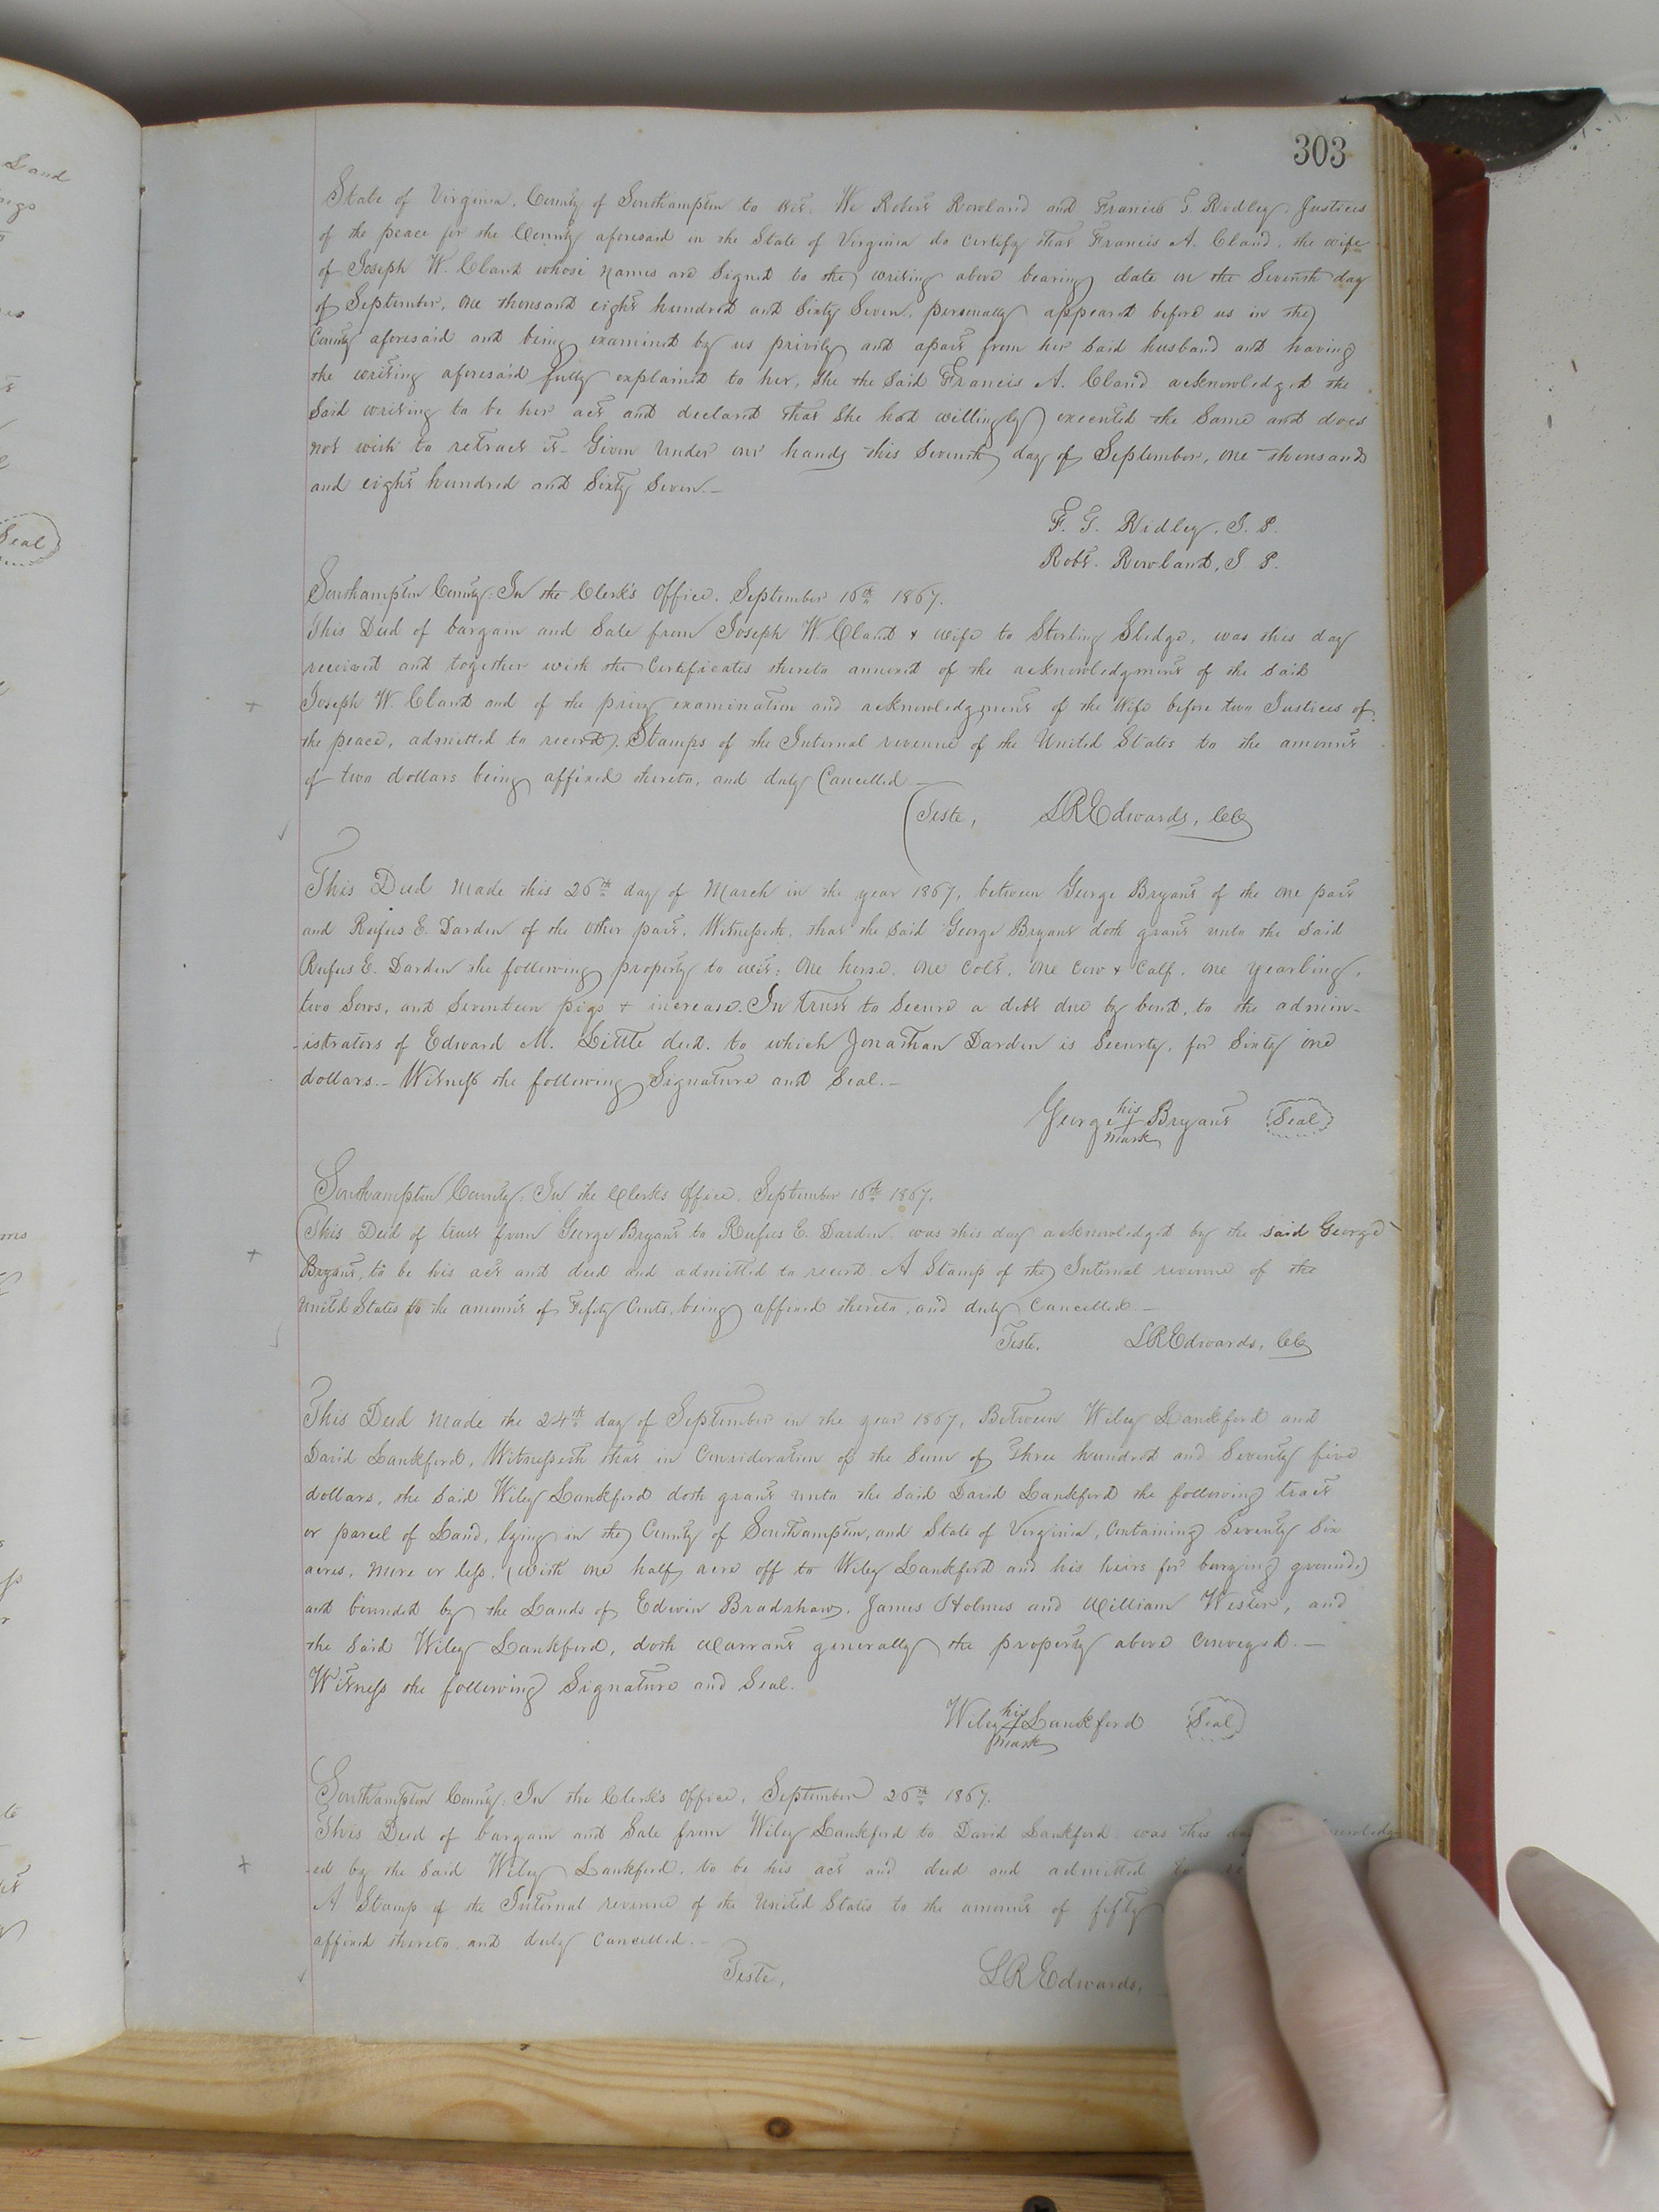 Land
Seal
303
State of Virginia, County of Southampton to wit. We Robert Rowland and Francis G. Ridley Justices
of the peace for the County aforesaid in the State of Virginia do certify that Francis A. Cland, the wife
of Joseph W. Cland whose names are signed to the writing above bearing date on the Seventh day
of September, one thousand eight hundred and Sixty Seven, personally appeared before us in the
County aforesaid and being examined by us privily and apart from her said husband and having
the writing aforesaid fully explained to her, She the Said Francis A. Cland acknowledged the
Said writing to be her act and declared that She had willingly executed the Same and does
not wish to retract it - Given under our hands this Seventh day of September, one thousand
and eight hundred and Sixty Seven. -
F. G. Ridley, J. P.
Robt. Rowland, J. P.
Southampton County: In the Clerk's Office. September 16th 1867.
This Deed of bargain and Sale from Joseph W. Cland & wife to Sterling Sledge, was this day
received and together with the Certificates thereto annexed of the acknowledgment of the said
Joseph W. Cland and of the privy examination and acknowledgment of the Wife before two Justices of
the peace, admitted to record. Stamps of the Internal revenue of the United States to the amount
of two dollars being affixed thereto, and duly Cancelled -
Teste, LREdwards, CC
This Deed made this 26th day of March in the year 1867, between George Bryant of the one part
and Rufus E. Darden of the other part. Witnesseth, that the Said George Bryant doth grant unto the Said
Rufus E. Darden the following property to wit: One horse, one Colt, one Cow & Calf, one yearling,
two Sows, and Seventeen pigs & increase. In trust to Secure a debt due by bond, to the admin-
-istrators of Edward M. Little decd. to which Jonathan Darden is Security, for Sixty one
dollars. - Witness the following Signature and Seal. -
his
George + Bryant Seal
mark
Southampton County: In the Clerk's Office, September 16th 1867.
This Deed of trust from George Bryant to Rufus E. Darden was this day acknowledged by the said George
Bryant, to be his act and deed and admitted to record. A Stamp of the Internal revenue of the
United States to the amount of Fifty Cents, being affixed thereto, and duly Cancelled -
Teste. LREdwards, CC
This Deed made the 24th day of September in the year 1867, Between Wiley Lankford and
David Lankford, Witnesseth that in Consideration of the Sum of Three hundred and Seventy five
dollars, the Said Wiley Lankford doth grant unto the Said David Lankford the following tract
or parcel of Land, lying in the County of Southampton, and State of Virginia, Containing Seventy Six
acres, more or less, (with one half acre off to Wiley Lankford and his heirs for burying ground)
and bounded by the Lands of Edwin Bradshaw, James Holmes and William Wester, and
the Said Wiley Lankford, doth Warrant generally the property above Conveyed. -
Witness the following Signature and Seal.
his
Wiley + Lankford Seal
mark
Southampton County: In the Clerk's Office, September 26th 1867.
This Deed of bargain and Sale from Wiley Lankford to David Lankford was this
-ed by the Said Wiley Lankford, to be his act and deed and admitted
A Stamp of the Internal revenue of the United States to the amount of fifty
affixed thereto and duly Cancelled. -
Teste, LREdwards,